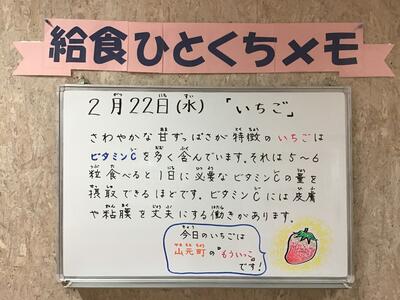 給食ひとくちメモ
2月22日(水) 「いちご」
さわやかな甘ずっぱさが特徴のいちごは
ビタミンCを多く含んでいます。それは5～6
粒食べると1日に必要なビタミンCの量を
摂取できるほどです。ビタミンCには皮膚
や粘膜を丈夫にする働きがあります。
今日のいちごは
山元町の"もういっこ"
です!